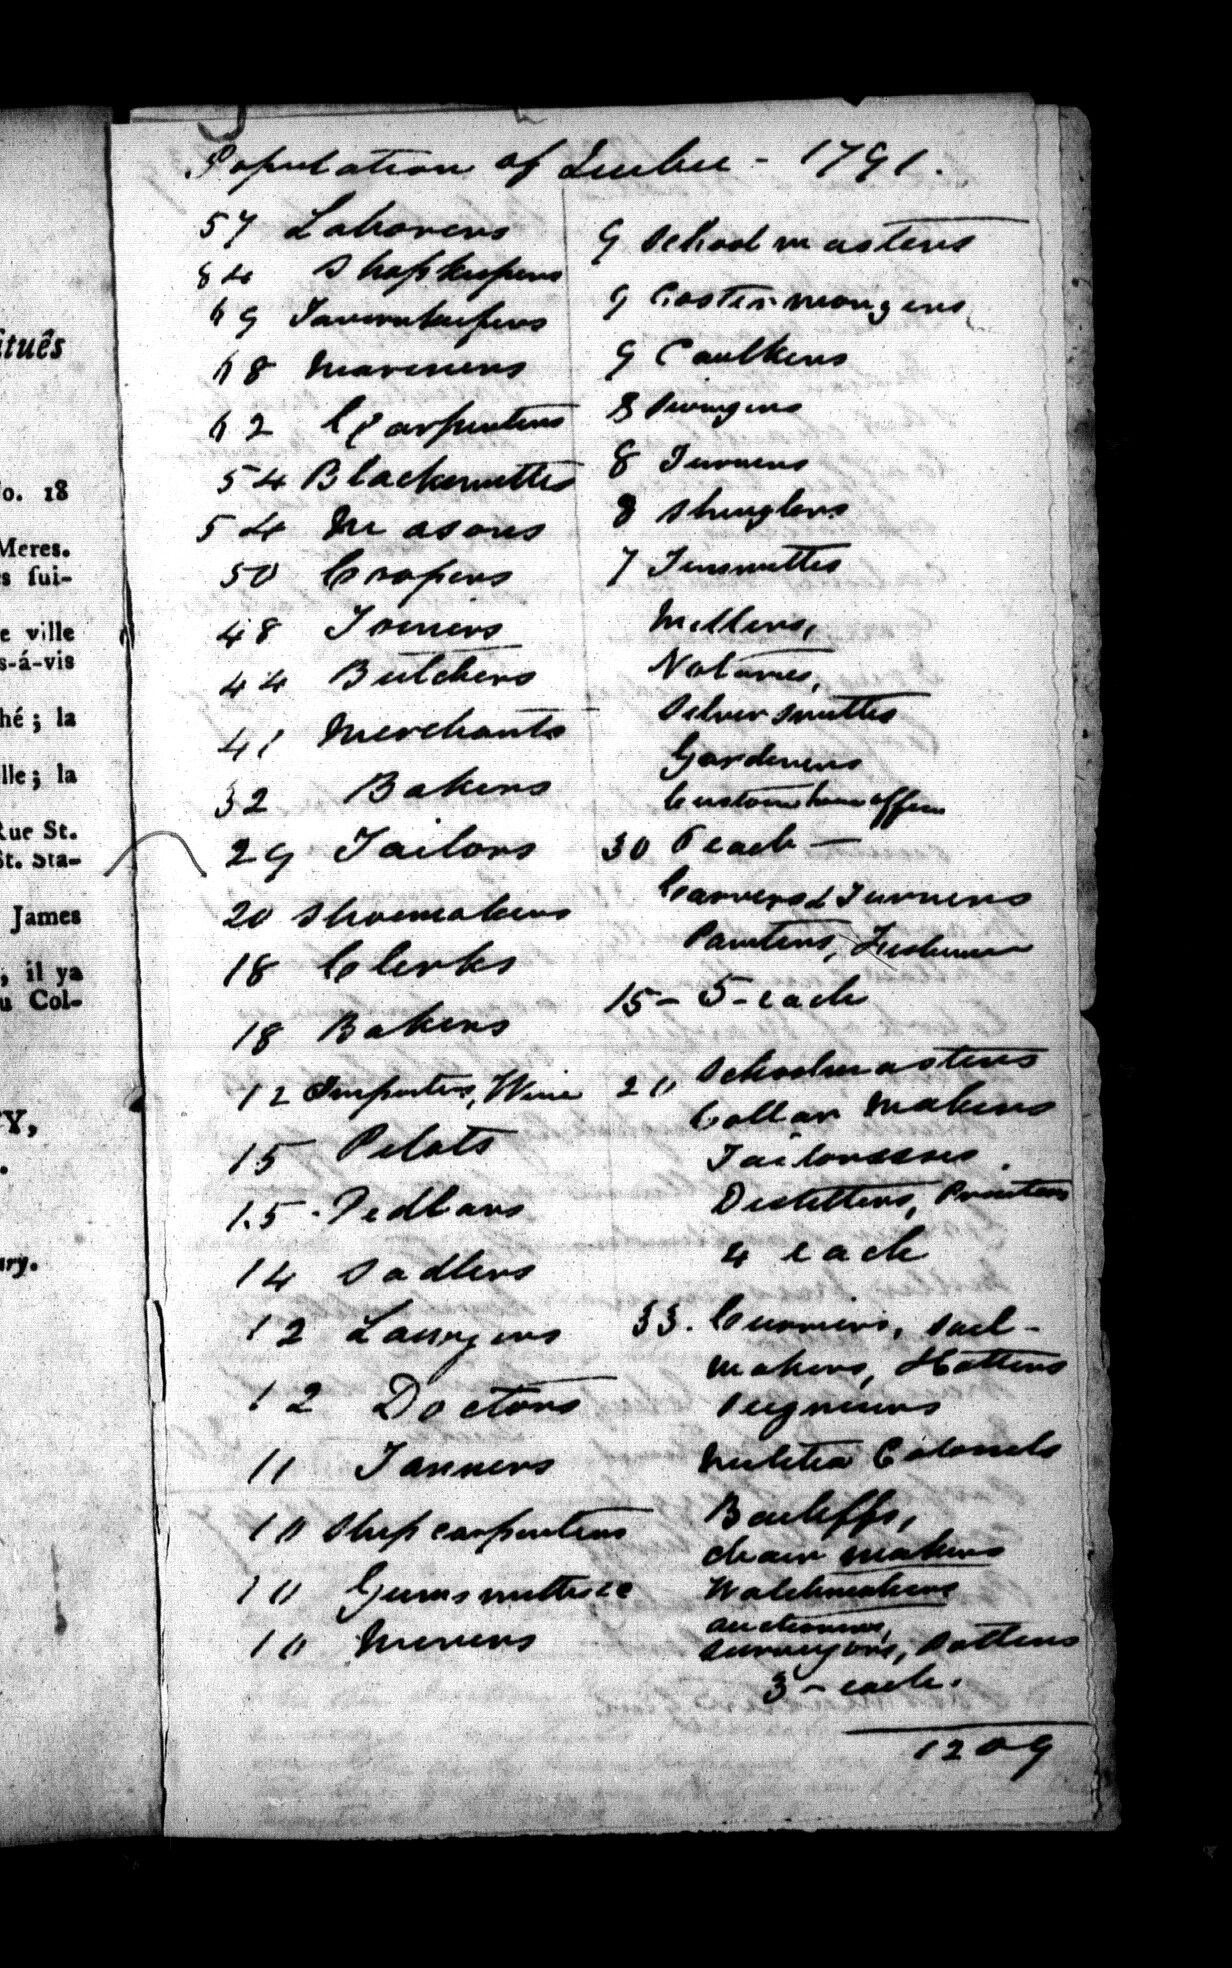 ituês
o. 18
Meres.
s sui-
e ville
s-á-vis
hé; la
lle; la
Rue St.
St. Sta-
James
, il ya
u Col-
Y,
.
ury.
Population of Quebec - 1791.
57 Laborers
84 Shopkeepers
69 Tavernkeepers
68 Mariners
62 Carpenters
54 Blacksmiths
54 Masons
50 Coopers
48 Joiners
44 Butchers
41 Merchants
32 Bakers
29 Tailors
20 Shoemakers
18 Clerks
18 Bakers
12 Importers, Wine
15 Pilots
15 Pedlars
14 Sadlers
12 Lawyers
12 Doctors
11 Tanners
10 Ship carpenters
10 Gunsmiths
10
9 School masters
9 Coster-mongers
9 Caulkers
8
8 Turners
8 Shinglers
7 Tinsmiths
Millers,
Notaries,
Silver smiths
Gardeners
Custom house officers
30 6 each —
Carvers & Turners
Painters, Fishermen
15 - 5 - each
20 Schoolmasters
Collar Makers
Tailoresses
Distillers, Printers
4 each
33. Curriers, Sail-
makers, Hatters
Seigneurs
Militia Colonels
Bailiffs,
chair makers
Watchmakers
auctioneers,
surveyors, Potters
3 - each.
1209